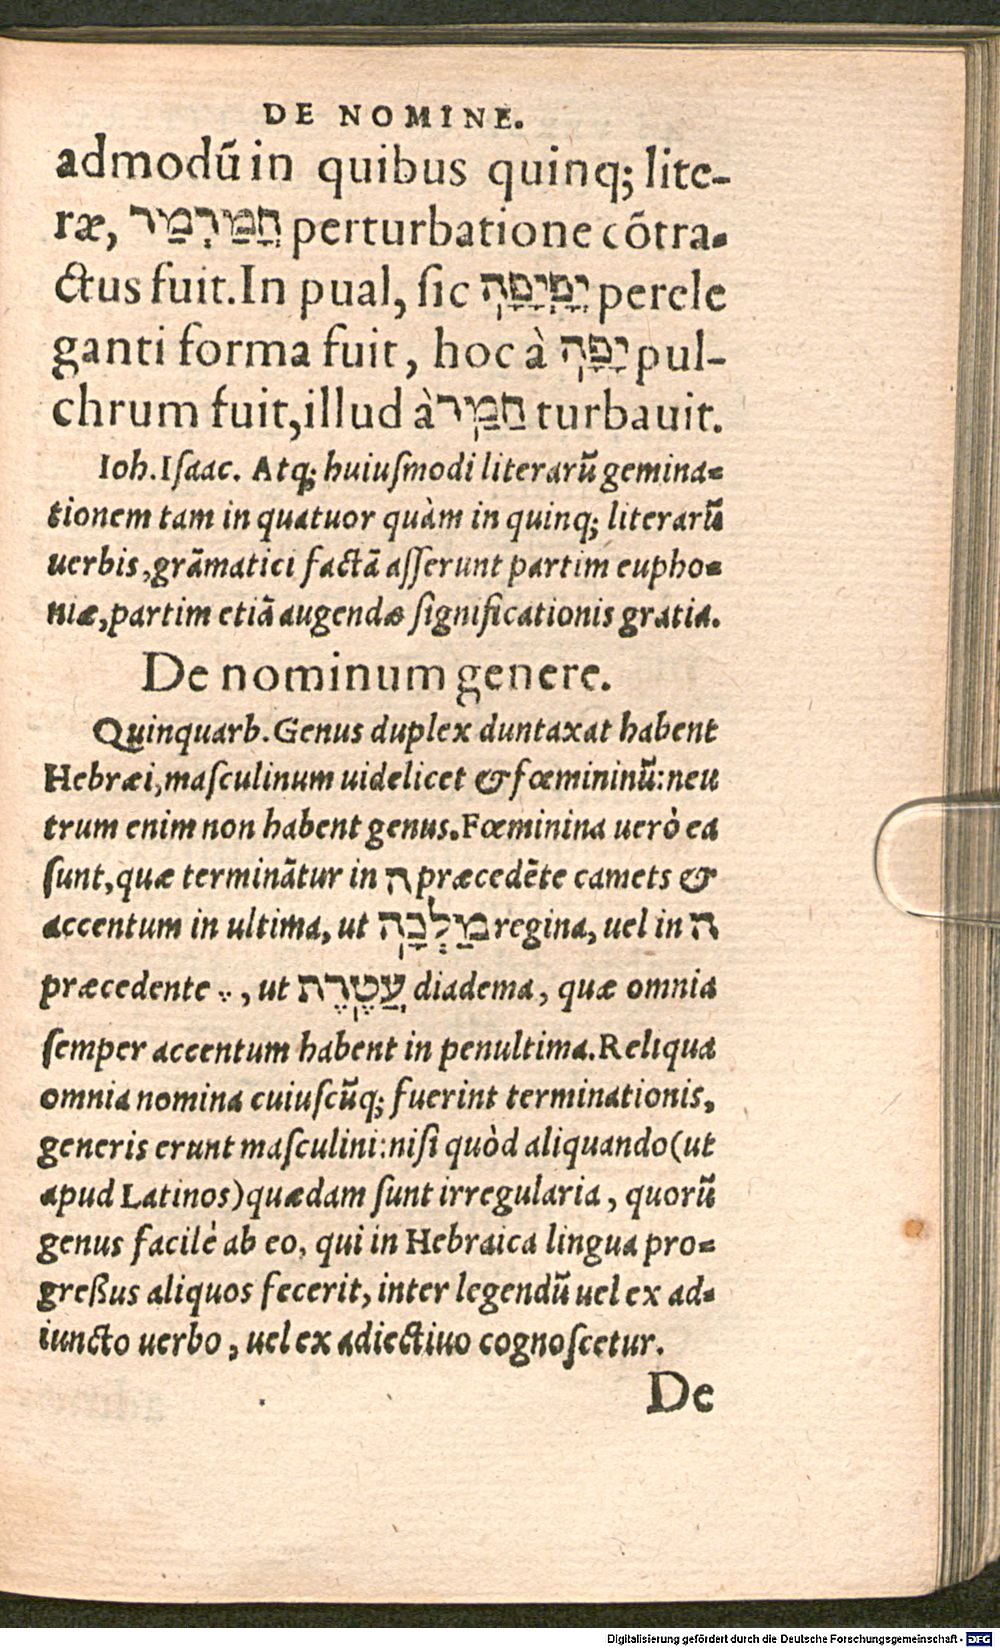 DE NOMINE.
admodũ in quibus quinq; lite-
ræ, חֲמַרְמַר perturbatione cõtra-
ctus fuit. In pual, ſic יָפְיָפָה perele
ganti forma fuit, hoc à יָפָה pul-
chrum fuit, illud à חָמַר turbauit.
Ioh. Iſaac. Atq; huiuſmodi literarũ gemina-
tionem tam in quatuor quàm in quinq; literarũ
uerbis, grãmatici factã aſſerunt partim eupho-
niæ, partim etiã augendæ ſignificationis gratia.
De nominum genere.
Quinquarb. Genus duplex duntaxat habent
Hebræi, maſculinum uidelicet & fœmininũ: neu
trum enim non habent genus. Fœminina uerò ea
ſunt, quæ terminãtur in ה præcedẽte camets &
accentum in ultima, ut מַלְכָּה regina, uel in ת
præcedente ֶ , ut עֲטֶרֶת diadema, quæ omnia
ſemper accentum habent in penultima. Reliqua
omnia nomina cuiuſcũq; fuerint terminationis,
generis erunt maſculini: niſi quòd aliquando (ut
apud Latinos) quædam ſunt irregularia, quorũ
genus facilè ab eo, qui in Hebraica lingua pro-
greßus aliquos fecerit, inter legendũ uel ex ad-
iuncto uerbo, uel ex adiectiuo cognoſcetur.
De
Digitalisierung gefördert durch die Deutsche Forschungsgemeinschaft - DFG